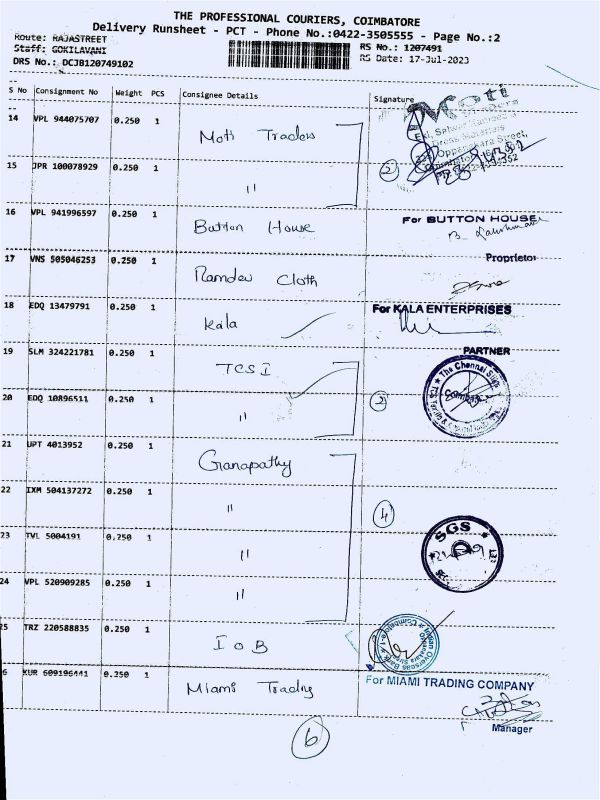 THE PROFESSIONAL COURIERS, COIMBATORE
Delivery Runsheet - PCT - Phone No.:0422-3505555 - Page No.:2
Route: RAJASTREET
Staff: GOKILAVANI
RS No.: 1207491
DRS No.: DCJB120749102
RS Date: 17-Jul-2023
S No Consignment No Weight PCS Consignee Details Signature
14 VPL 944075707 0.250 1 Moti Traders
15 JPR 100078929 0.250 1 "
2
16 VPL 941996597 0.250 1 Button House
For BUTTON HOUSE
Proprietor
17 VNS 505046253 0.250 1 Ramdev Cloth
18 EDQ 13479791 0.250 1 Kala
For KALA ENTERPRISES
PARTNER
19 SLM 324221781 0.250 1 TCS I
The Chennai
20 EDQ 10896511 0.250 1 "
2
21 UPT 4013952 0.250 1 Ganapathy
22 IXM 504137272 0.250 1 "
4
23 TVL 5004191 0.250 1 "
SGS
24 VPL 520909285 0.250 1 "
25 TRZ 220588835 0.250 1 I O B
Indian Overseas Bank
26 KUR 609196441 0.250 1 Miami Trading
For MIAMI TRADING COMPANY
Manager
6